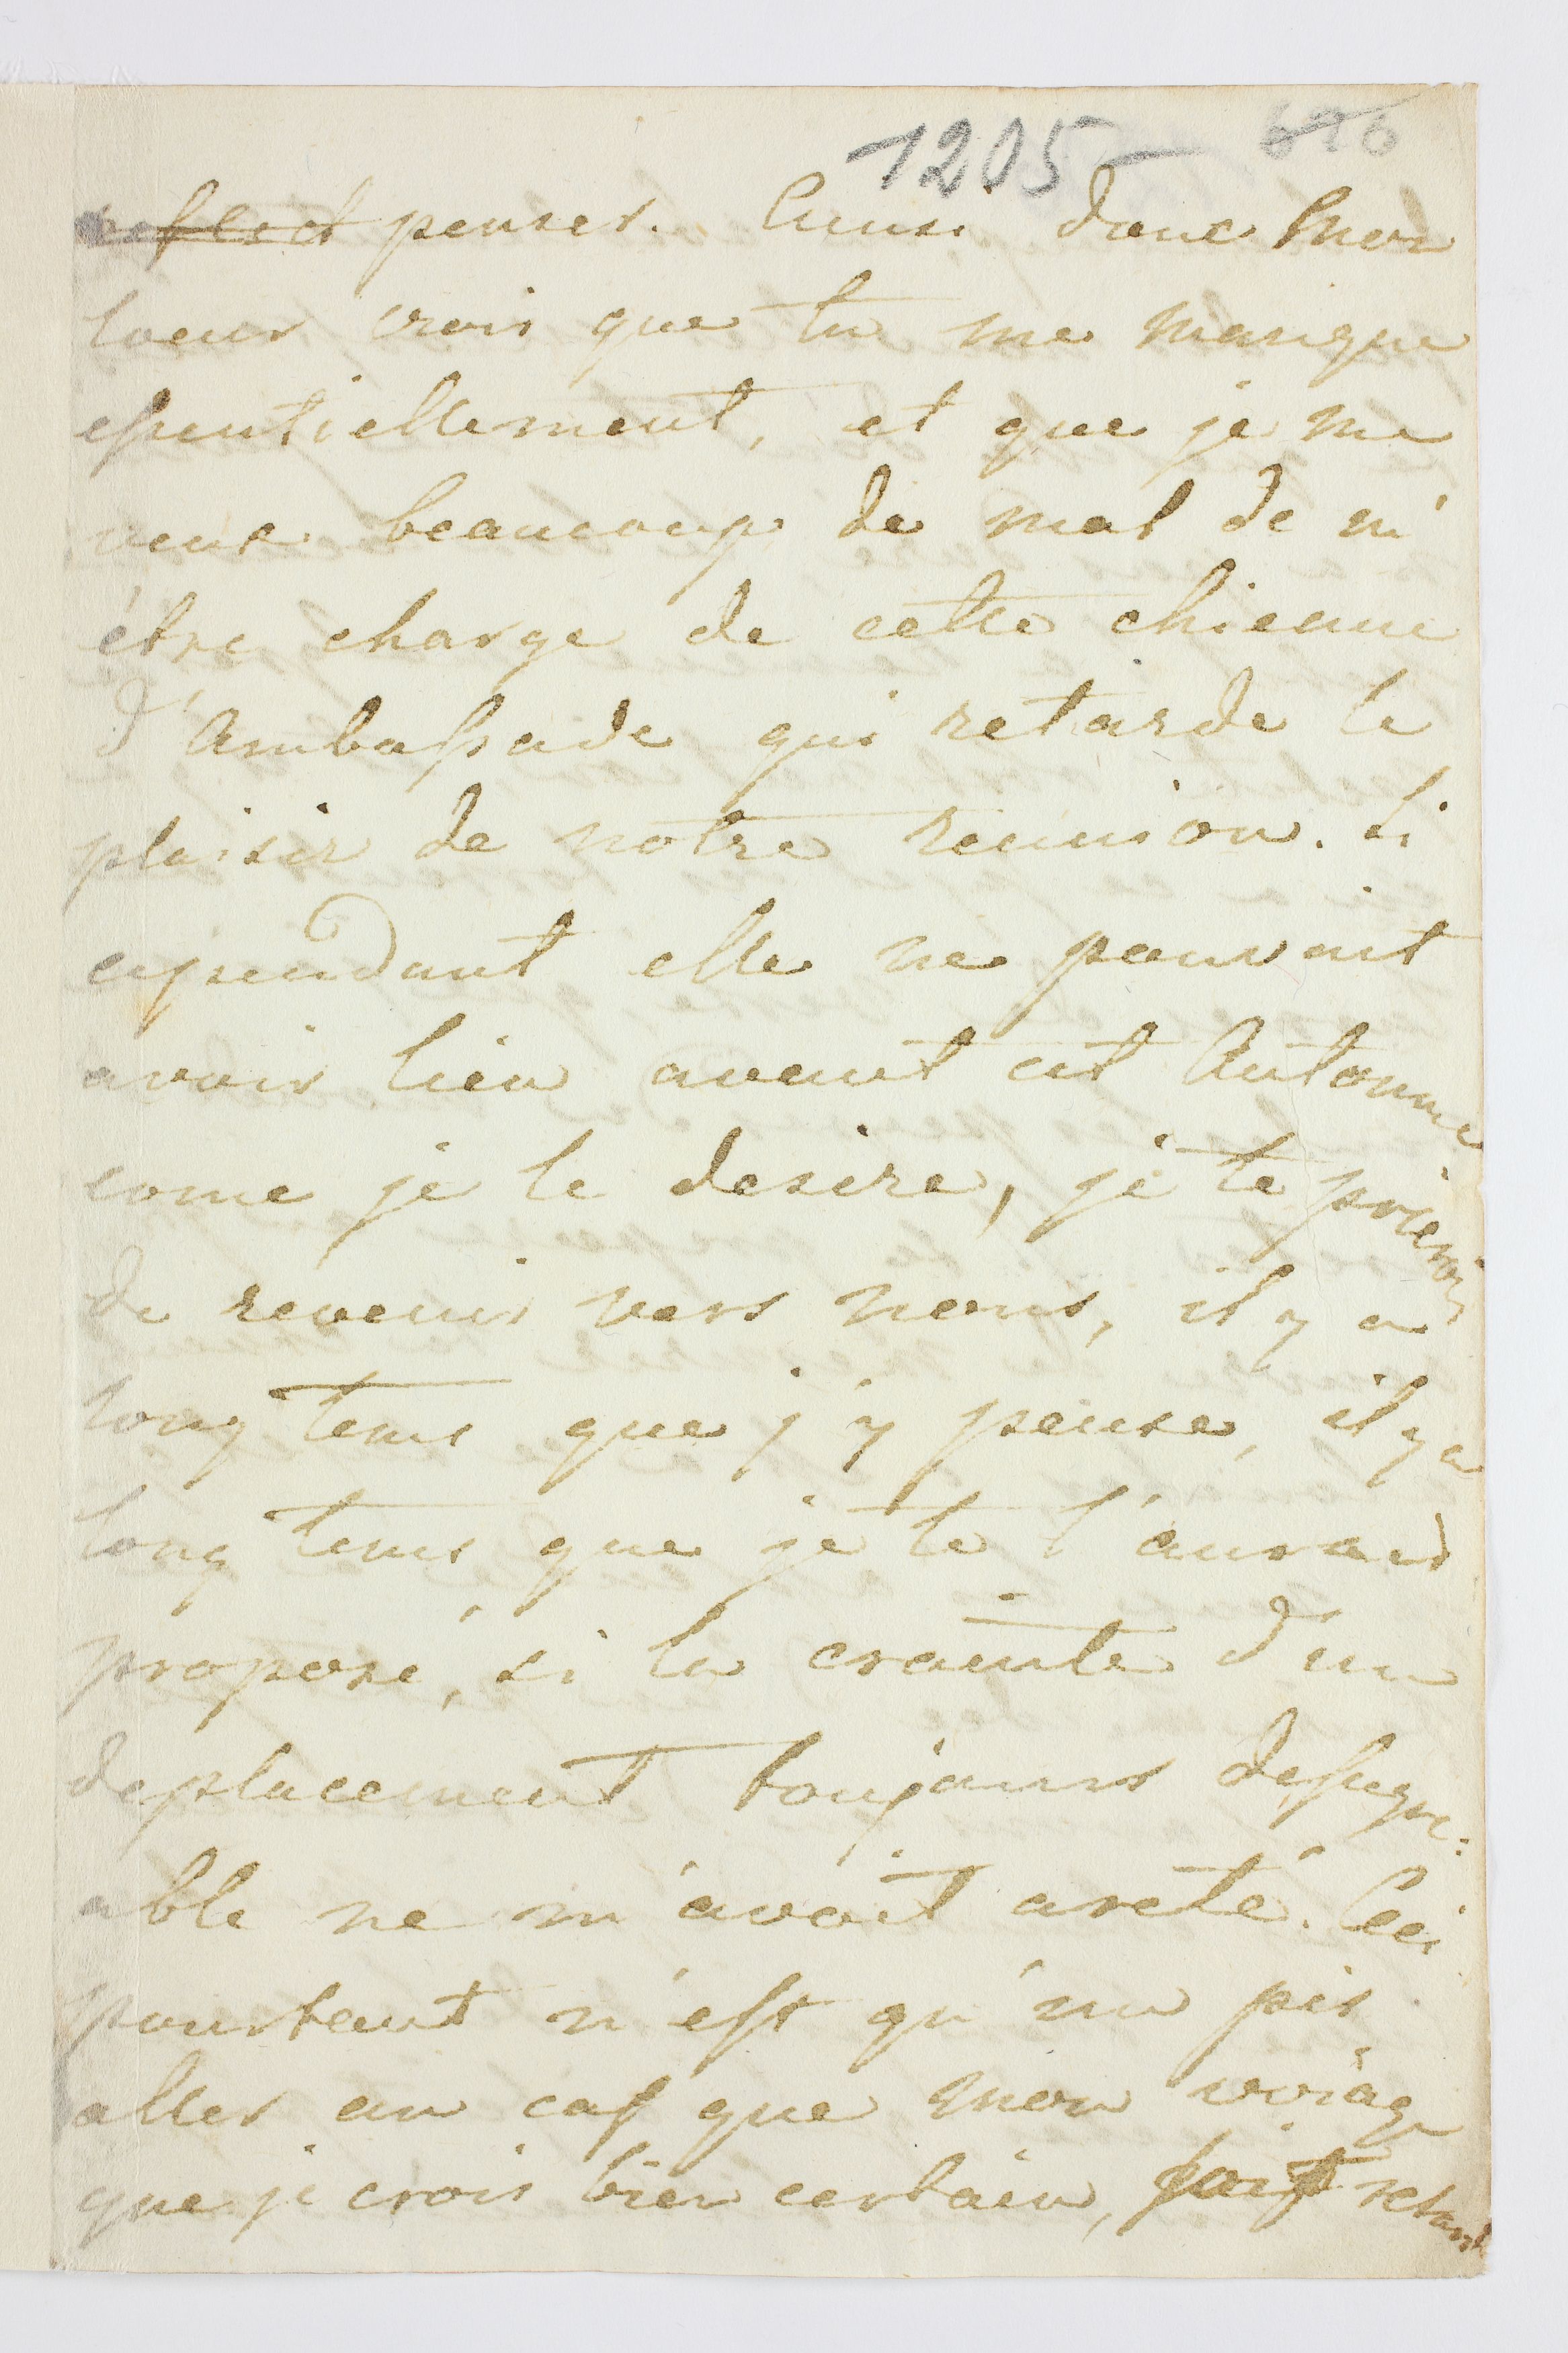 1205 696
reflect penser. Ainsi donc Mon
Coeur crois que tu me manque
essentiellement, et que je me
veux beaucoup de mal de m'
être charge de cette chienne
d'Ambassade qui retarde le
plaisir de notre reunion. Si
cependant elle ne pouvait
avoir lieu avant cet Automne
come je le desire, je te prierois
de revenir vers nous, il y a
long tems que j'y pense, il y a
long tems que je te l'aurais
proposé, si la crainte d'un
deplacement toujours desagre:
able ne m'avoit areté. Ceci
pourtant n'est qu'un pis
aller au cas que mon voiage
que je crois bien certain, soit retardé